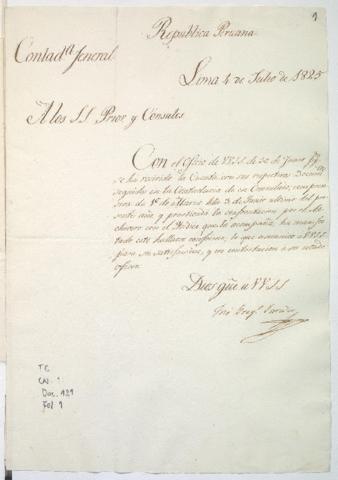 1
Republica Peruana
Contad.ª Jeneral
Lima 4 de Julio de 1825
A los S.S. Prior y Consules
Con el Oficio de V.S.S. de 30 de Junio
se ha recivido la Cuenta con sus respectivos Docum.tos
seguida en la Contaduria de ese Consulado, compren
siva de 1º de Marzo hta ultimo del pre
sente año y practicada la confrontacion por el Ar
chivero con el Yndice que la acompaña, ha manifes
tado este hallarse conforme, lo que comunico a V.S.S.
para su satisfaccion, y en contestacion a su citado
oficio.
Dios gũe a V.V.S.S.
José Greg.º
TC
CO. 1
Doc. 121
Fol 1